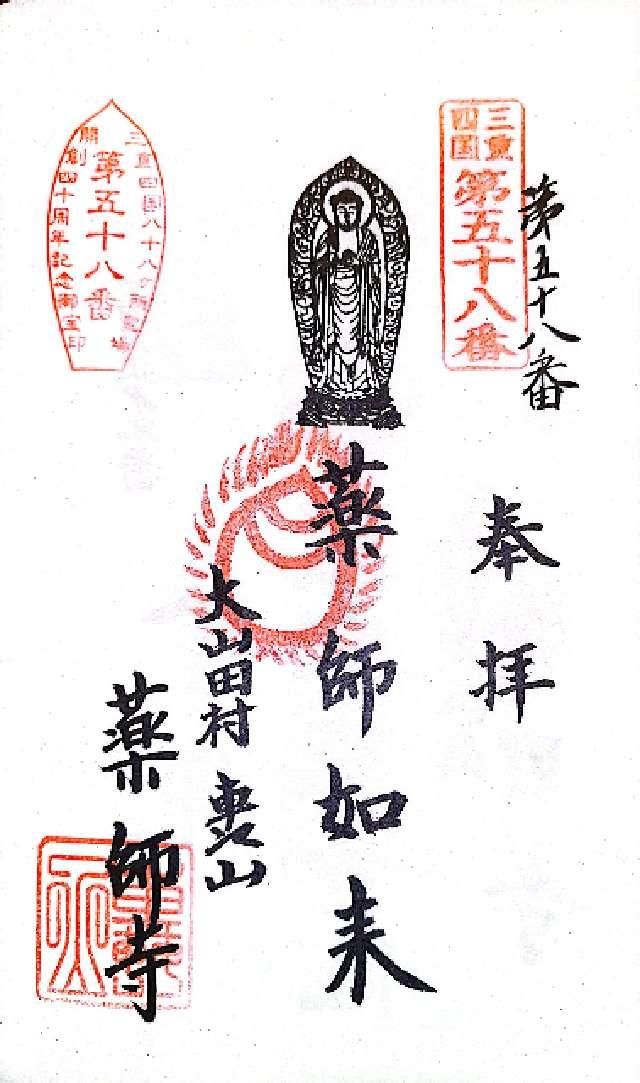 三重
四国
第五十八番
第五十八番
奉拝
薬師如来
大山田村
山
薬師寺
三重四国八十八ヶ所霊場
第五十八番
開創四十周年記念御宝印